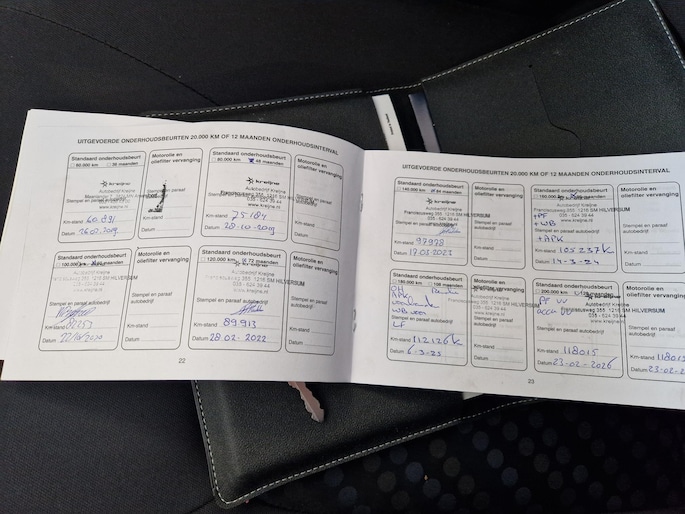 UITGEVOERDE ONDERHOUDSBEURTEN 20.000 KM OF 12 MAANDEN ONDERHOUDSINTERVAL
Standaard onderhoudsbeurt
60.000 km 36 maanden
kreijne
Autobedrijf Kreijne
Stempel en paraaf
Km-stand 60.891
Datum
Motorolie en
oliefilter vervanging
Stempel en paraaf
autobedrijf
Km-stand
Datum
Standaard onderhoudsbeurt
80.000 km 48 maanden
kreijne
Autobedrijf Kreijne
Franciscusweg 355 1216 SM HILVERSUM
035 - 624 39 44
www.kreijne.nl
Stempel en paraaf autobedrijf
Km-stand 75184
Datum 28-10-2019
Motorolie en
oliefilter vervanging
Stempel en paraaf
autobedrijf
Km-stand
Datum
Standaard onderhoudsbeurt
100.000 km maanden
Autobedrijf Kreijne
1216 SM HILVERSUM
035 - 624 39 44
www.kreijne.nl
Stempel en paraaf autobedrijf
Km-stand
Datum
Motorolie en
oliefilter vervanging
Stempel en paraaf
autobedrijf
Km-stand
Datum
Standaard onderhoudsbeurt
120.000 km 72 maanden
Autobedrijf Kreijne
Franciscusweg 355 1216 SM HILVERSUM
035 - 624 39 44
www.kreijne.nl
Stempel en paraaf autobedrijf
Km-stand 89.913
Datum 28-02-2022
Motorolie en
oliefilter vervanging
Stempel en paraaf
autobedrijf
Km-stand
Datum
22
UITGEVOERDE ONDERHOUDSBEURTEN 20.000 KM OF 12 MAANDEN ONDERHOUDSINTERVAL
Standaard onderhoudsbeurt
140.000 km 84 maanden
kreijne
Autobedrijf Kreijne
Franciscusweg 355 1216 SM HILVERSUM
035 - 624 39 44
www.kreijne.nl
Stempel en paraaf autobedrijf
Km-stand 97978
Datum 17-03-2023
Motorolie en
oliefilter vervanging
Stempel en paraaf
autobedrijf
Km-stand
Datum
Standaard onderhoudsbeurt
160.000 km
+PF
+WB
+APK
Stempel en paraaf autobedrijf
Km-stand 105237k
Datum 14-3-24
Motorolie en
oliefilter vervanging
Stempel en paraaf
autobedrijf
Km-stand
Datum
Standaard onderhoudsbeurt
180.000 km 108 maanden
APK
LF
1216 SM HILVERSUM
Km-stand 112126k
Datum 6-3-25
Motorolie en
oliefilter vervanging
Stempel en paraaf
autobedrijf
Km-stand
Datum
Standaard onderhoudsbeurt
200.000 km
PF VV
accu VV
1216 SM HILVERSUM
035 - 624 39 44
www.kreijne.nl
Stempel en paraaf autobedrijf
Km-stand 118015
Datum 23-02-2026
Motorolie en
oliefilter vervanging
Stempel en paraaf
autobedrijf
Km-stand 118015
Datum 23-02-2
23